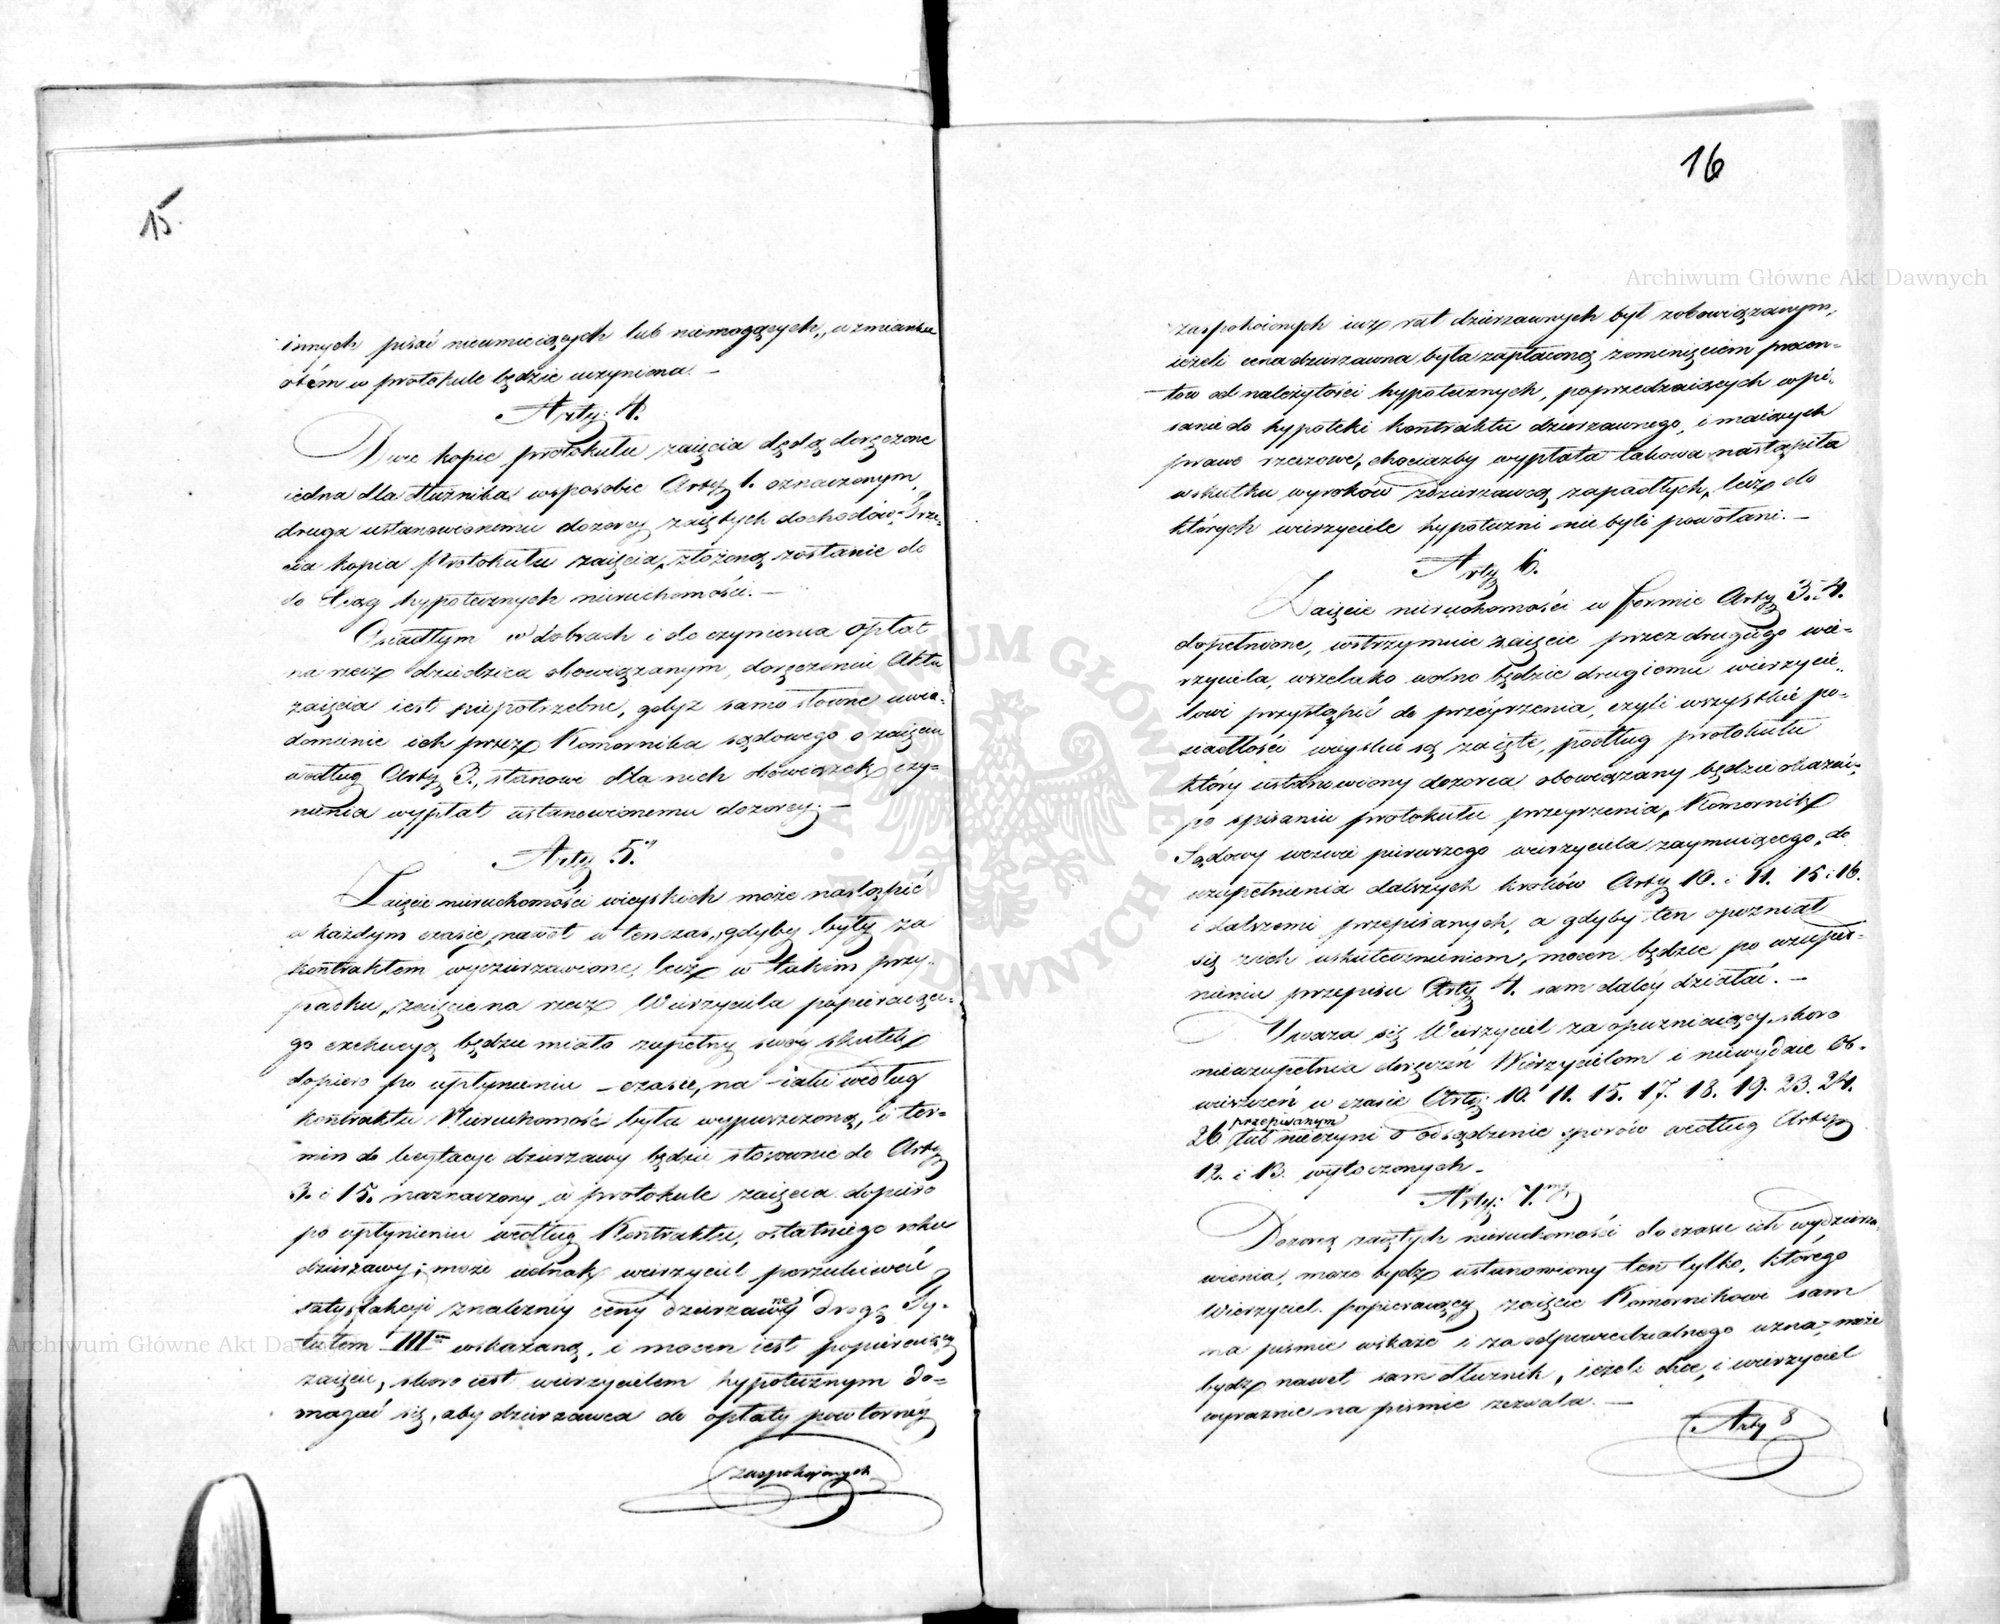 15.
innych pisać nieumieiących lub niemogących, wzmianka
otém w protokule będzie uczyniona. —
Arty: 4.
Dwie kopie protokułu zaięcia będą doręczone
iedna dla dłużnika wsposobie Arty 1. oznaczonym,
druga ustanowionemu dozorcy zaiętych dochodów, Trze-
cia kopia Protokułu zaięcia, złożoną zostanie do
do Xiąg hypotecznych nieruchomości. —
Osiadłym w dobrach i do czynienia opłat
na rzecz dziedzica obowiązanym, doręczenie Aktu
zaięcia iest niepotrzebne, gdyż samo słowne uwia-
domienie ich przez Komornika sądowego o zaięciu
według Arty 3. stanowi dla nich obowiązek czy-
nienia wypłat ustanowionemu dozorcy. —
Arty 5.
Zaięcie nieruchomości wieyskich może nastąpić
w każdym czasie, nawet w ten czas, gdyby były za
kontraktem wydzierzawione, lecz w takim przy-
padku, zaięcie na rzecz Wierzyciela popieraiące-
go exekucyą będzie miało zupełny swóy skutek
dopiero po upłynieniu czasu, na iaki według
kontraktu Nieruchomość była wypuszczoną, i ter-
min do licytacyi dzierzawy będzie stosownie do Arty
3. i 15. naznaczony w protokule zaięcia dopiero
po upłynieniu według Kontraktu, ostatniego roku
dzierzawy; może iednak wierzyciel poszukiwać
satysfakcyi z należney ceny dzierzawney drogą Ty-
tułem III wskazaną, i mocen iest popieraiący
zaięcie, skoro iest wierzycielem hypotecznym do-
magać się, aby dzierzawca do opłaty powtórney
zaspokojonych
16
zaspokoionych iuż rat dzierzawnych był zobowiązanym,
ieżeli cena dzierzawna była zapłaconą z ominięciem procen-
tów od należytości hypotecznych, poprzedzaiących wpi-
sanie do hypoteki kontraktu dzierzawnego, i maiących
prawo rzeczowe, chociażby wypłata takowa nastąpiła
w skutku wyroków z dzierzawcą zapadłych, lecz do
których wierzyciele hypoteczni nie byli powołani. —
Arty 6.
Zaięcie nieruchomości w formie Arty 3. i 4.
dopełnione, wstrzymuie zaięcie przez drugiego wie-
rzyciela, wszelako wolno będzie drugiemu wierzycie-
lowi przystąpić do przeyrzenia, czyli wszystkie po-
siadłości wieyskie są zaięte, podług protokułu
który ustanowiony dozorca obowiązany będzie okazać,
po spisaniu protokułu przeyrzenia, Komornik
Sądowy wezwie pierwszego wierzyciela zaymuiącego, do
uzupełnienia dalszych kroków Arty 10. i 11. 15 i 16.
i dalszemi przepisanych, a gdyby ten opoźniał
się z ich uskutecznieniem, mocen będzie po uzupeł-
nieniu przepisu Arty 4. sam daléy działać. —
Uważa się Wierzyciel za opuźniaiący, skoro
nieuzupełnia doręczeń Wierzycielom i niewydaie Ob-
wieszczeń w czasie Arty. 10. 11. 15. 17. 18. 19. 23. 24.
26 przepisanym lub nieczyni o osądzenie sporów według Arty
12. i 13. wytoczonych. —
Arty: 7.
Dozorcą zaiętych nieruchomości do czasu ich wydzierza-
wienia, może bydź ustanowiony ten tylko, którego
Wierzyciel popieraiący zaięcie Komornikowi sam
na piśmie wskaże i za odpowiedzialnego uzna, może
bydź nawet sam dłużnik, ieżeli chce, i wierzyciel
wyraźnie na piśmie zezwala. —
Arty 8
Archiwum Główne Akt Dawnych
Archiwum Główne Akt Dawnych
ARCHIWUM GŁÓWNE AKT DAWNYCH